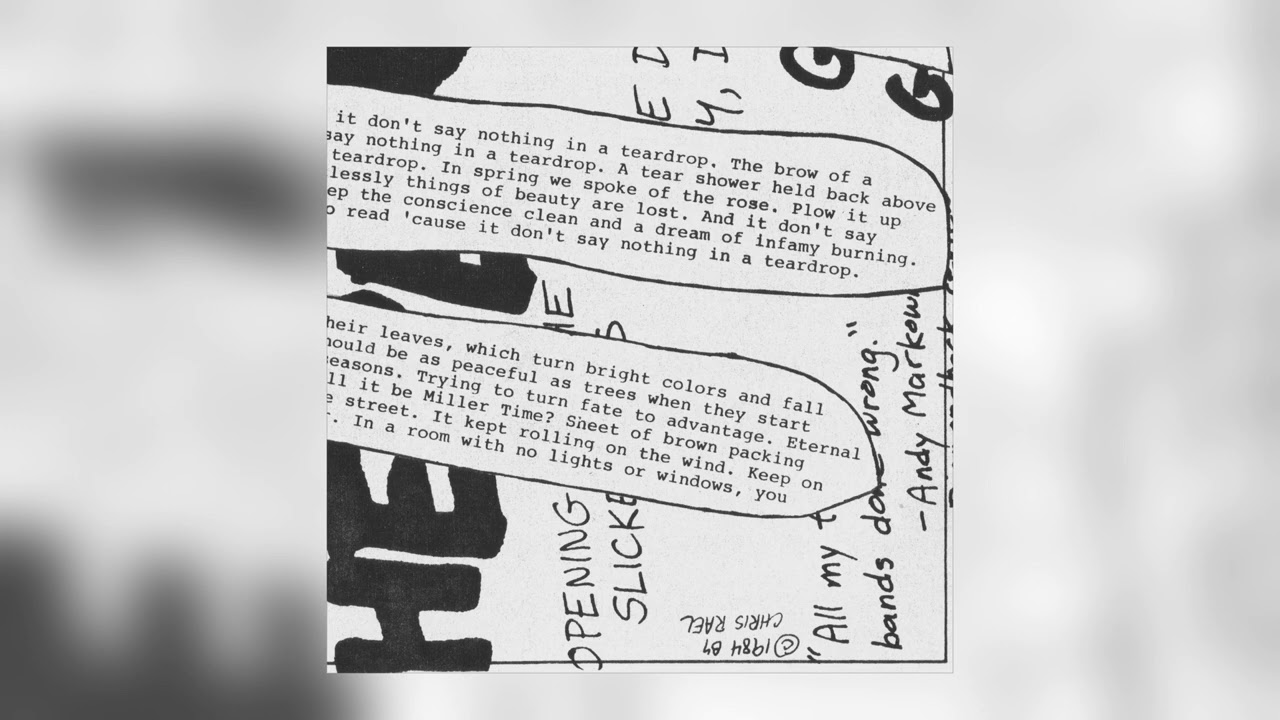 it don't say nothing in a teardrop. The brow of a
say nothing in a teardrop. A tear shower held back above
teardrop. In spring we spoke of the rose. Plow it up
lessly things of beauty are lost. And it don't say
ep the conscience clean and a dream of infamy burning.
o read 'cause it don't say nothing in a teardrop.
heir leaves, which turn bright colors and fall
hould be as peaceful as trees when they start
easons. Trying to turn fate to advantage. Eternal
ll it be Miller Time? Sheet of brown packing
e street. It kept rolling on the wind. Keep on
. In a room with no lights or windows, you
HE
E D
Y, I
G
G
OPENING
SLICKE
"All my t
bands done wrong."
-Andy Markow
©1984 BY
CHRIS RAEL